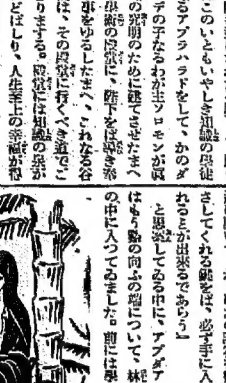 このいともいやしき知識の學徒
るアブラハラドをして、かのダ
デの子なるわが主ソロモンが眞
の發明のために建てさせたまへ
學術の殿堂に、陛下をば導き奉
事をゆるしたまへ、これなる谷
は、その殿堂に行くべき道でご
りまする。殿堂には知識の泉が
どばしり、人生至上の幸福が得
さしてくれる鍵をば、必ず手に入
れることが出來るであらう」
と思案してゐる中に、アブダア
はもう谿の向ふの端について、林
の中に入つてゐました。前には